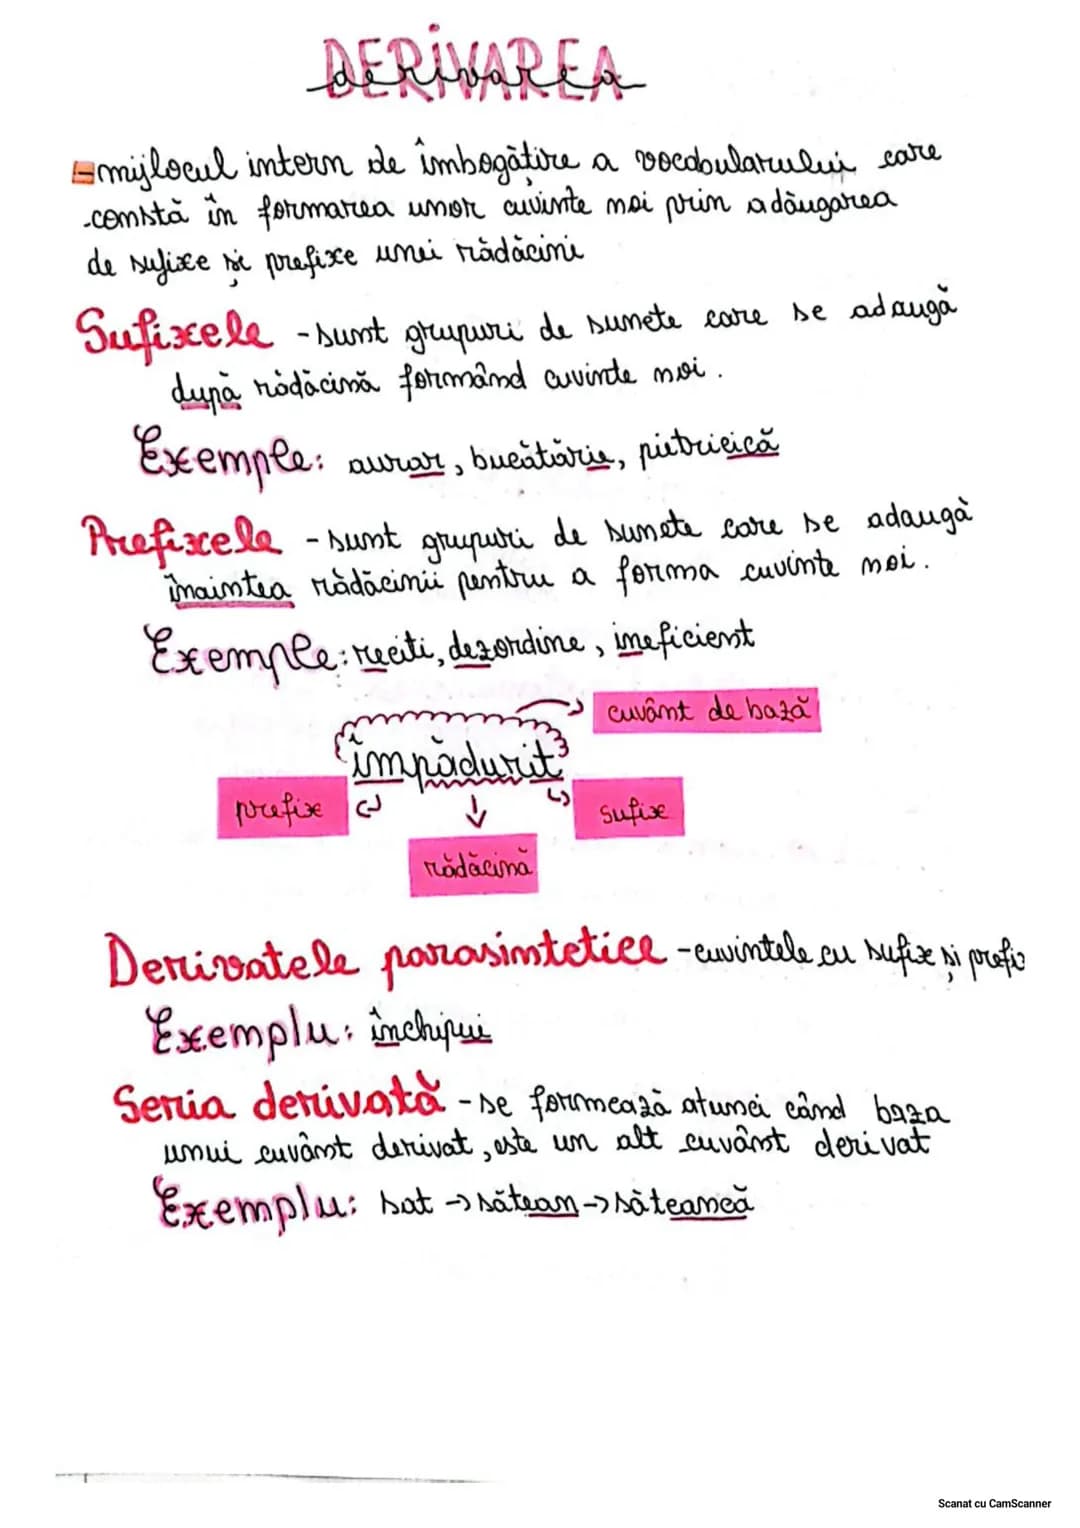 DERIVAREA
derivarea
=mijlocul intern de îmbogățire a vocabularului care
constă în formarea unor cuvinte noi prin adăugarea
de sufixe și prefixe unei rădăcini
Sufixele - sunt grupuri de sunete care se adaugă
după rădăcină formând cuvinte noi.
Exemple: aurar, bucătărie, pietricică
Prefixele - sunt grupuri de sunete care se adaugă
înaintea rădăcinii pentru a forma cuvinte noi.
Exemple: reciti, dezordine, ineficient
cuvânt de bază
împădurit
prefix
sufix
rădăcină
Derivatele parasintetice - cuvintele cu sufix și prefix
Exemplu: închipui
Seria derivată - se formează atunci când baza
unui cuvânt derivat, este un alt cuvânt derivat
Exemplu: sat → sătean → săteancă
Scanat cu CamScanner